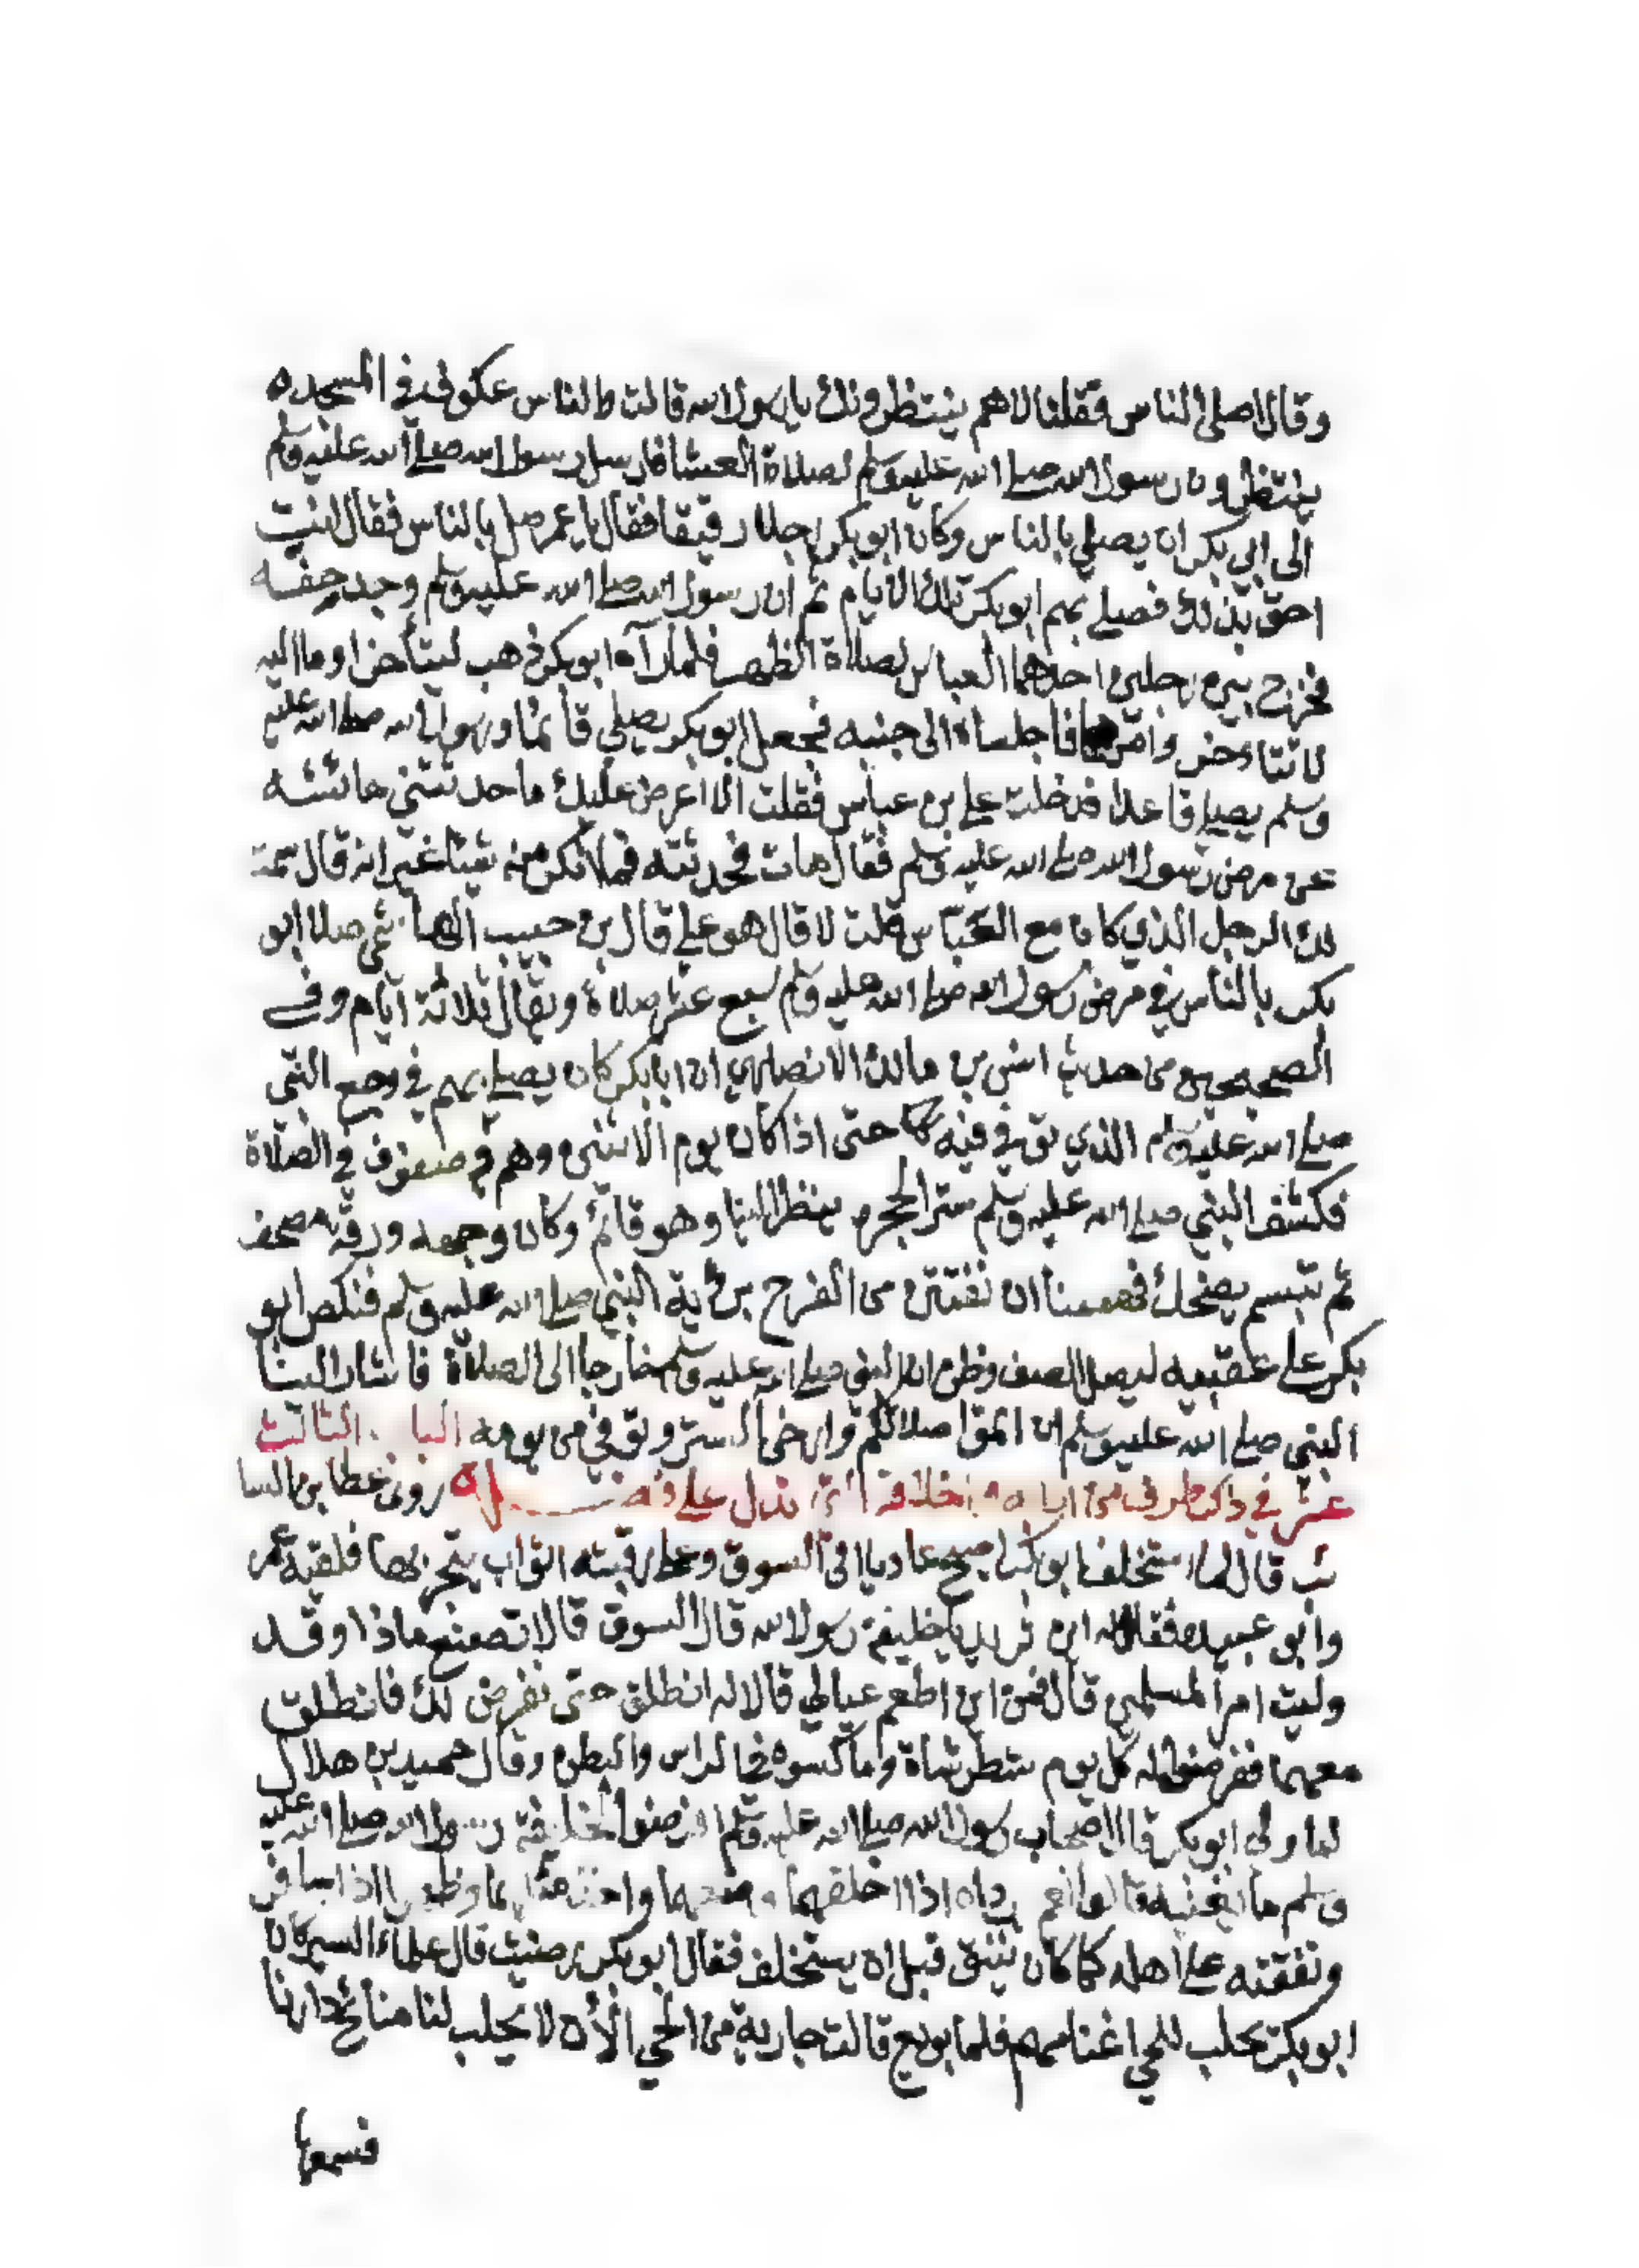 وقال اصلى الناس فقلنا لا هم ينتظرونك يا رسول الله قالت والناس عكوف في المسجد
ينتظرون رسول الله صلى الله عليه وسلم لصلاة العشا فارسل رسول الله صلى الله عليه وسلم
الى ابي بكر ان يصلي بالناس وكان ابو بكر رجلا رقيقا فقال يا عمر صل بالناس فقال انت
احق بذلك فصلى بهم ابو بكر تلك الايام ثم ان رسول الله صلى الله عليه وسلم وجد خفه
فخرج بين رجلين احدهما العباس لصلاة الظهر فلما رآه ابو بكر ذهب ليتأخر اوما اليه
ان لا تتاخر وامرهما فاجلساه الى جنبه فجعل ابو بكر يصلي قائما ورسول الله صلى الله عليه
وسلم يصلي قاعدا فدخلت على بن عباس فقلت الا اعرض عليك ما حدثتني عائشه
عن مرض رسول الله صلى الله عليه وسلم فقال هات فحدثته فما انكر منه شيئا غير انه قال سمت
لك الرجل الذي كان مع العباس قلت لا قال هو علي قال بن حبيب الهاشمي صلا ابو
بكر بالناس في مرض رسول الله صلى الله عليه وسلم سبع عشر صلاة ويقال ثلاثة ايام وفي
الصحيحين من حديث انس بن مالك الانصاري ان ابا بكر كان يصلي بهم في وجع النبي
صلى الله عليه وسلم الذي توفي فيه حتى اذا كان يوم الاثنين وهم صفوف في الصلاة
فكشف النبي صلى الله عليه وسلم ستر الحجره ينظر الينا وهو قائم وكان وجهه ورقة مصحف
ثم تبسم يضحك فهممنا ان نفتتن من الفرح برؤية النبي صلى الله عليه وسلم فنكص ابو
بكر على عقبيه ليصل الصف وظن ان النبي صلى الله عليه وسلم خارجا الى الصلاة فاشار الينا
النبي صلى الله عليه وسلم ان اتموا صلاتكم وارخى الستر وتوفي من يومه الباب الثالث
عشر في ذكر طرف من الخلافة تدل على روى عطا بن السا
ئب قال لما استخلف ابو بكر اصبح غاديا الى السوق وعلى رقبته اثواب يتجر بها فلقيه عمر
وابو عبيده فقالا له اين تريد يا خليفة رسول الله قال السوق قالا تصنع ماذا وقد
وليت امر المسلمين قال فمن اين اطعم عيالي قالا له انطلق حتى نفرض لك فانطلق
معهما ففرضوا له كل يوم شطر شاة وما كسوه في الراس والبطن وقال حميد بن هلال
لما ولي ابو بكر قال اصحاب رسول الله صلى الله عليه وسلم افرضوا لخليفة رسول الله صلى الله عليه
وسلم ما يغنيه قالوا نعم برداه اذا اخلقهما وضعهما واخذ مثلهما وظهره اذا سافر
ونفقته على اهله كما كان ينفق قبل ان يستخلف فقال ابو بكر رضيت قال علماء السير كان
ابو بكر يحلب للحي اغنامهم فلما بويع قالت جارية من الحي الآن لا يحلب لنا منائح دارنا
فسمعها